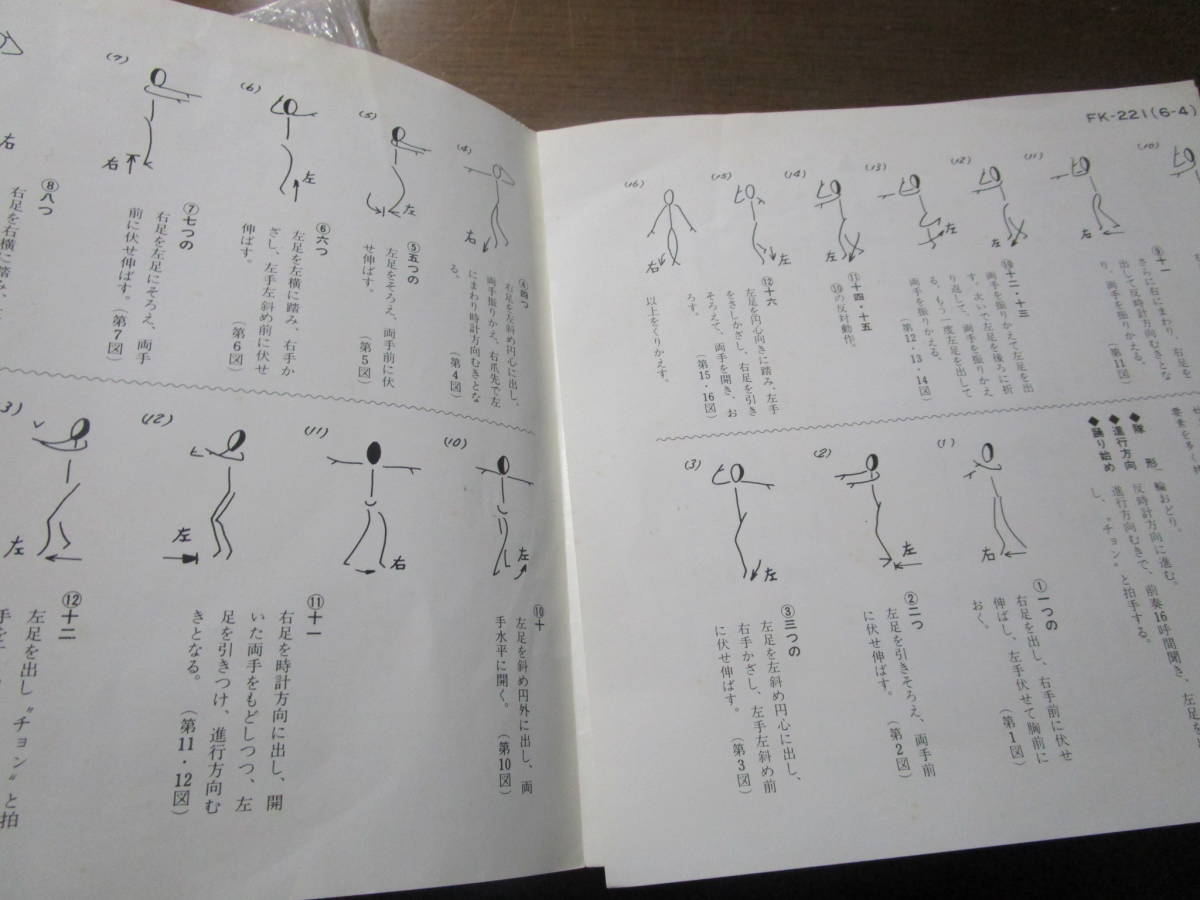 FK-221(6-4)
(10)
(11)
(12)
(13)
(14)
(15)
(16)
左
左
右
⑨十一
さらに右にまわり、右足を
出して反時計方向むきとな
り、両手を振りかえる。
(第11図)
⑩十二・十三
両手を振りかえて左足を出
す、次いで左足を後ろに折
り返して、両手を振りかえ
る、もう一度左足を出して
両手を振りかえる。
(第12・13・14図)
⑪十四・十五
⑩の反対動作。
⑫十六
左足を円心向きに踏み、左手
をさしかざし、右足を引き
そろえて、両手を開き、お
ろす。
(第15・16図)
以上をくりかえす。
◆隊形 輪おどり。
◆進行方向 反時計方向に進む。
◆踊り始め 進行方向むきで、前奏16呼間聞き、左足を
し、〝チョン〟と拍手する。
(1)
(2)
(3)
右
左
左
①一つの
右足を出し、右手前に伏せ
伸ばし、左手伏せて胸前に
おく。
(第1図)
②二つ
左足を引きそろえ、両手前
に伏せ伸ばす。
(第2図)
③三つの
左足を左斜め円心に出し、
右手かざし、左手左斜め前
に伏せ伸ばす。
(第3図)
(4)
(5)
(6)
(7)
右
左
右
右
④四つ
右足を左斜め円心に出し、
両手振りかえ、右爪先で左
にまわり時計方向むきとな
る。
(第4図)
⑤五つの
左足をそろえ、両手前に伏
せ伸ばす。
(第5図)
⑥六つ
左足を左横に踏み、右手か
ざし、左手左斜め前に伏せ
伸ばす。
(第6図)
⑦七つの
右足を左足にそろえ、両手
前に伏せ伸ばす。(第7図)
⑧八つ
右足を右横に踏み、
(10)
(11)
(12)
左
右
左
左
⑩十
左足を斜め円外に出し、両
手水平に開く。
(第10図)
⑪十一
右足を時計方向に出し、開
いた両手をもどしつつ、左
足を引きつけ、進行方向む
きとなる。
(第11・12図)
⑫十二
左足を出し〝チョン〟と拍